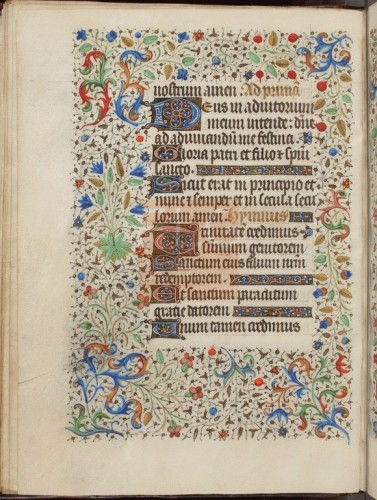 nostrum amen: Ad prima
Deus in adiutorium
meum intende: dne
ad adiuuandu me festina.
Gloria patri et filio et spui
sancto.
Sicut erat in principio et
nunc et semper et in secula secu
lorum amen. Hymnus
Ueritate credimus
ssimum genitorem
Sanctum eius filium nrm
redemptorem.
Et sanctum paraclitum
gratie datorem
Unum tamen credimus